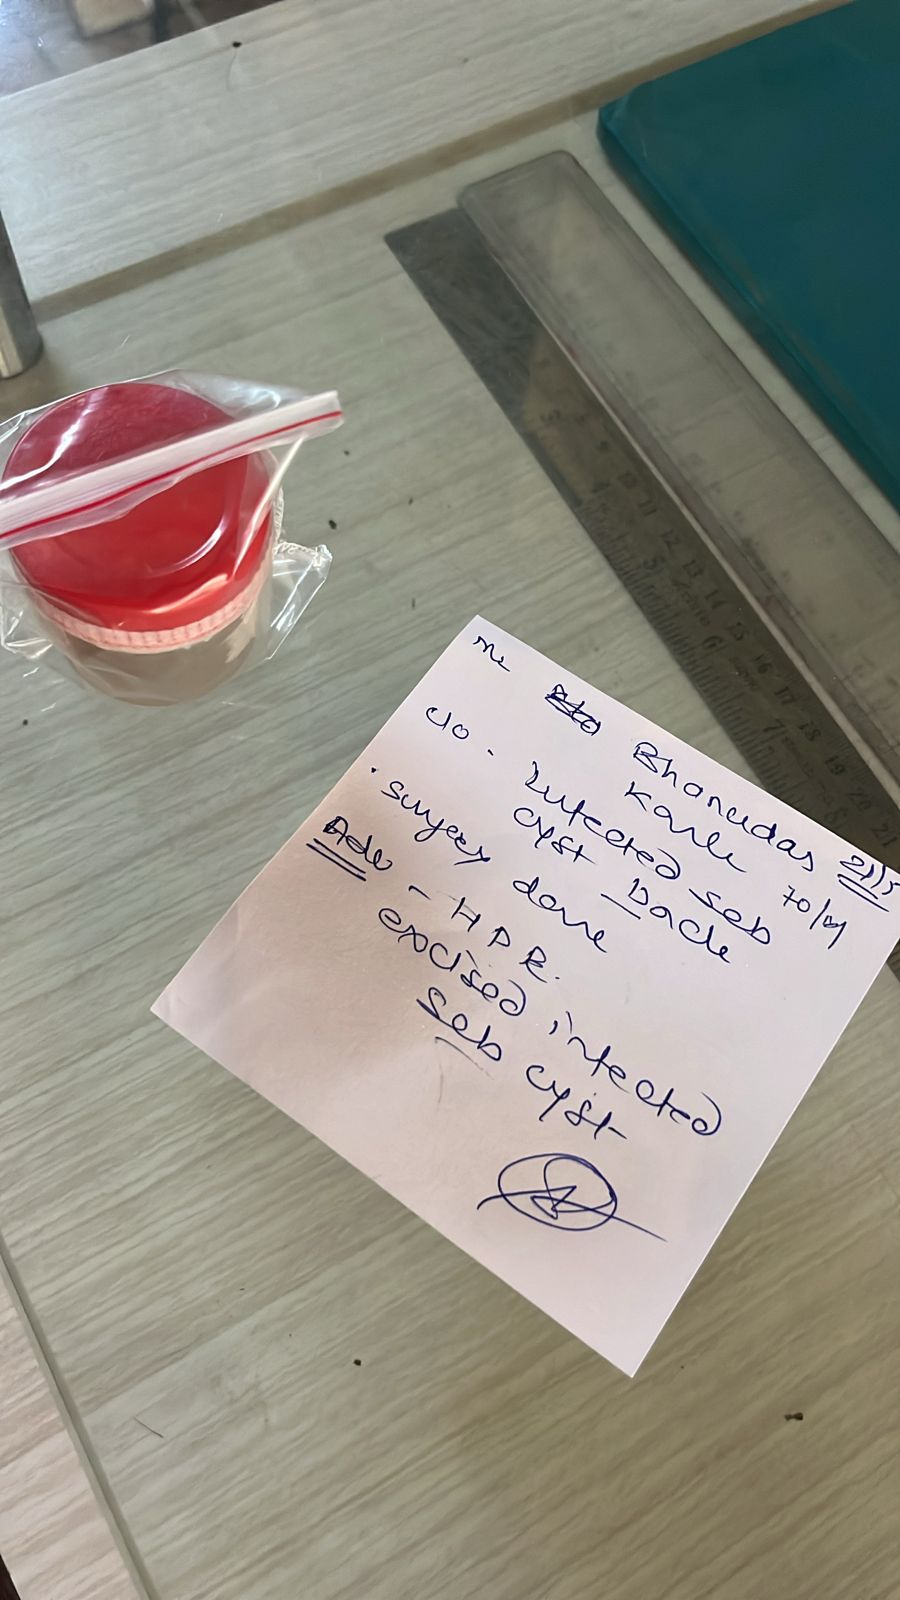 Mr Bhanudas
Karle 70/M
c/o . Infected seb
cyst back
. surgery done
Adv - HPR.
excised infected
seb cyst
11 12 13 14 15 16 17 18 19 20 21
5 6 7